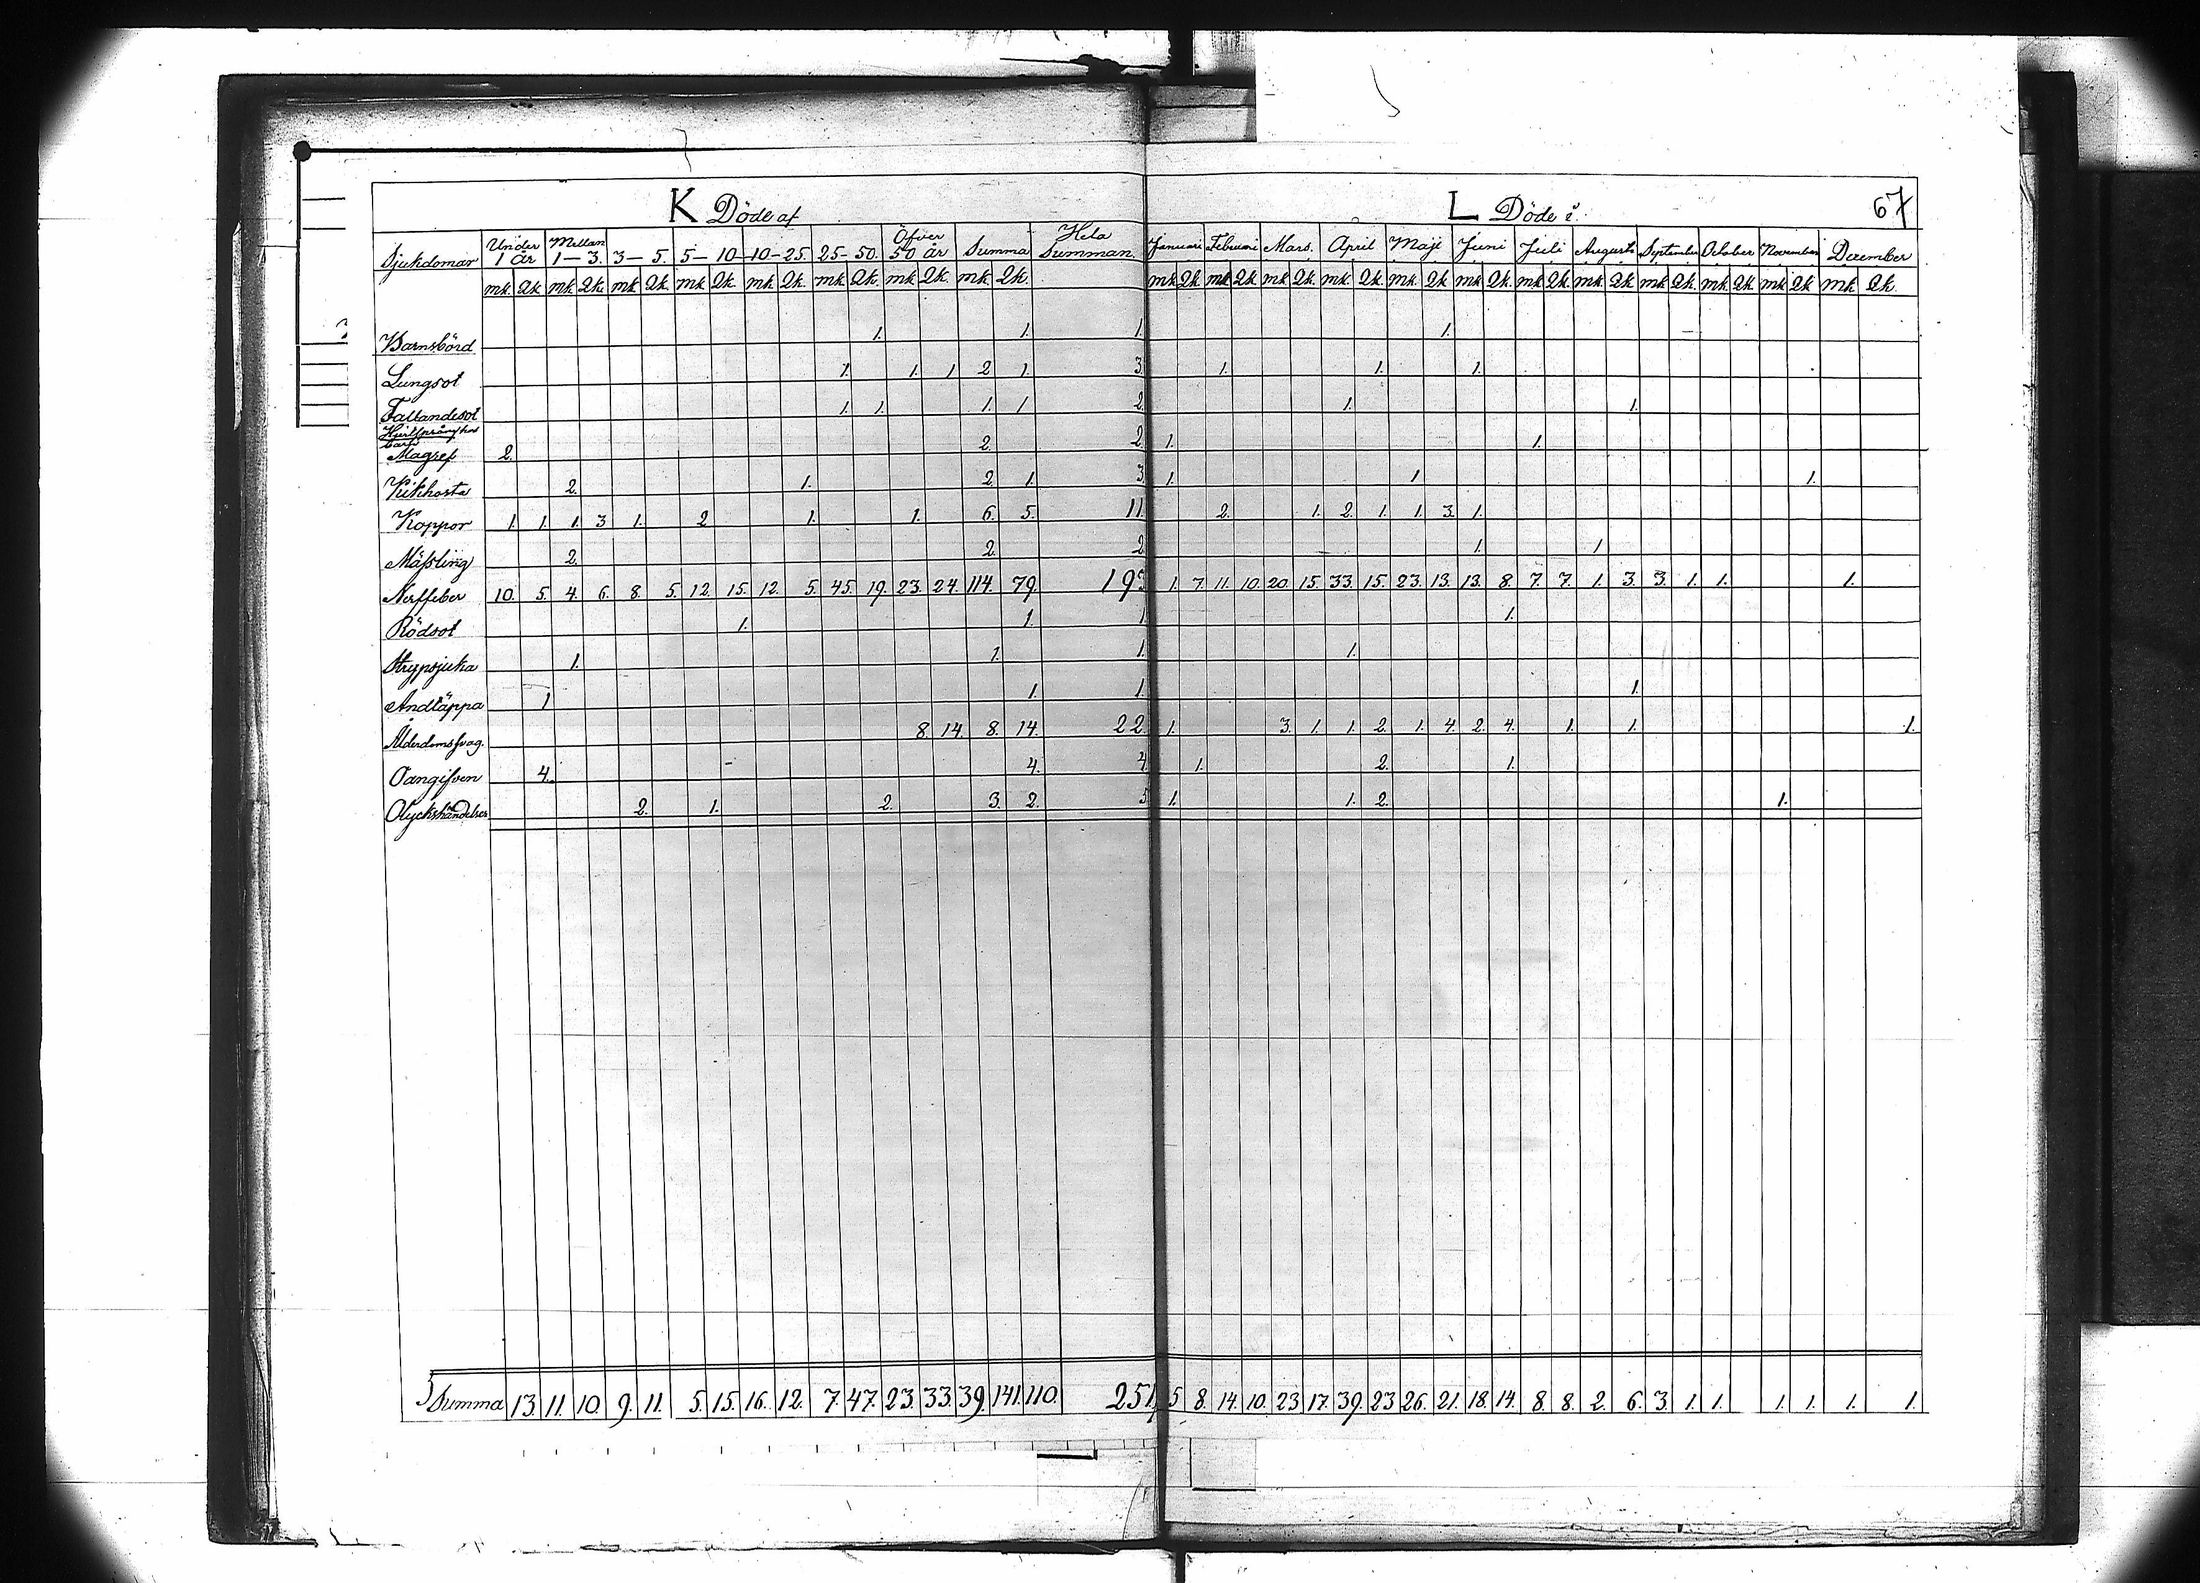 K Döde af
L Döde i
67
Sjukdomar Under 1 år Mellan 1–3. 3–5. 5–10 10–25. 25–50. Öfver 50 år Summa Hela Summan. Januari Februari Mars. April Maji Juni Juli Augusti September October November December
mk. Qk. mk. Qk. mk. Qk. mk. Qk. mk. Qk. mk. Qk. mk. Qk. mk. Qk. mk Qk. mk Qk. mk Qk. mk. Qk. mk. Qk mk Qk. mk Qk. mk. Qk mk Qk. mk. Qk. mk Qk mk. Qk.
Barnsbörd 1. 1. 1. 1.
Lungsot 1. 1. 1 2. 1. 3. 1. 1. 1.
Fallandesot 1. 1. 1. 1 2. 1. 1.
Magref 2. 2. 2. 1. 1.
Kikhosta 2. 1. 2. 1. 3. 1. 1. 1.
Koppor 1. 1. 1. 3 1. 2 1. 1. 6. 5. 11. 2. 1. 2. 1. 1. 3. 1.
Mässling 2. 2. 2 1. 1
Nerffeber 10. 5. 4. 6. 8. 5. 12. 15. 12. 5. 45. 19. 23. 24. 114. 79. 193 1. 7. 11. 10. 20. 15. 33. 15. 23. 13. 13. 8. 7. 7. 1. 3. 3. 1. 1. 1.
Rödsot 1. 1. 1. 1.
Strypsjuka 1. 1. 1. 1.
Andtäppa 1 1. 1. 1.
Ålderdomssvag. 8. 14. 8. 14. 22. 1. 3. 1. 1. 2. 1. 4. 2. 4. 1. 1. 1.
Oangifven 4. 4. 4. 1. 2. 1.
Olyckshändelser 2. 1. 2. 3. 2. 5 1. 1. 2. 1.
Summa 13. 11. 10. 9. 11. 5. 15. 16. 12. 7. 47. 23. 33. 39. 141. 110. 251. 5. 8. 14. 10. 23. 17. 39. 23 26. 21. 18. 14. 8. 8. 2. 6. 3. 1. 1. 1. 1. 1. 1.